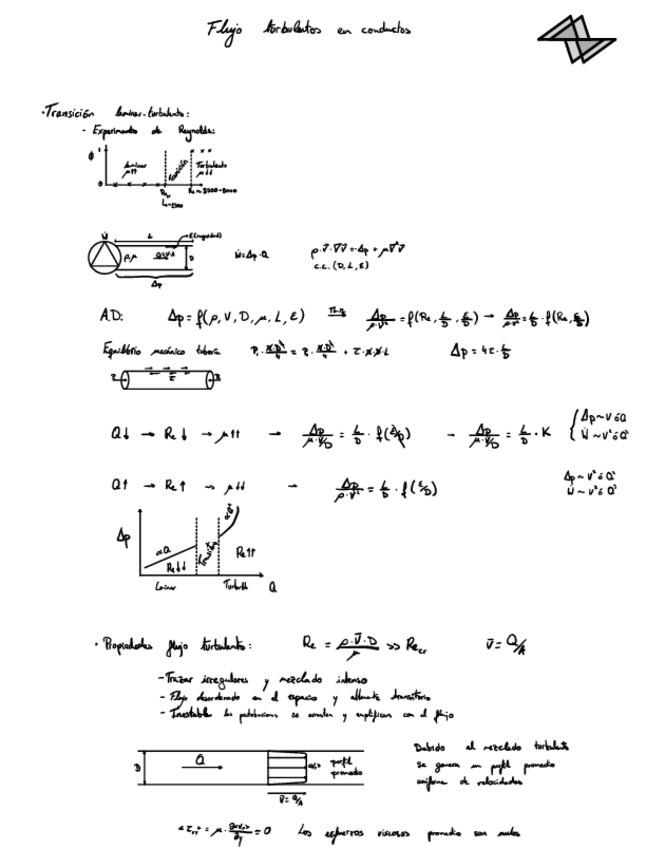 Flujo turbulentos en conductos
·Transición laminar-turbulento:
- Experimento de Reynolds:
ϕ 1
laminar μ↑↑ Transición Turbulento μ↓↓
0
Re
Ẇ L
ρ,μ D
Δp
Ẇ=Δp·Q
ρ·V̄·∇V̄=-Δp+μ∇²V̄
c.c. (D, L, ε)
A.D: Δp=f(ρ, V, D, μ, L, ε) Δp/ρ·V²=f(Re, L/D, ε/D) → Δp/ρ·V²=L/D·f(Re, ε/D)
Equilibrio mecánico tubería Δp=4τ·L/D
τ
Q↓ → Re↓ → μ↑↑ → Δp/μ·V/D = L/D · f(ε/D) → Δp/μ·V/D = L/D · K { Δp~V ó Q
Ẇ~V² ó Q²
Q↑ → Re↑ → μ↓↓ → Δp/ρ·V² = L/D · f(ε/D) Δp~V² ó Q²
Ẇ~V³ ó Q³
Δp
αQ
αQ²
Re↓↓ Transición Re↑↑
Laminar Turbulento Q
· Propiedades flujo turbulento: Re = ρ·V̄·D/μ >> Recr V̄=Q/A
- Trazar irregulares y mezclado intenso
- Flujo desordenado en el espacio y altamente transitorio
- Inestable las perturbaciones se y amplifican con el flujo
D Q perfil
promedio
V̄=Q/A
Debido al mezclado turbulento
se genera un perfil promedio
uniforme de velocidades
=0 Los esfuerzos viscosos promedio son nulos